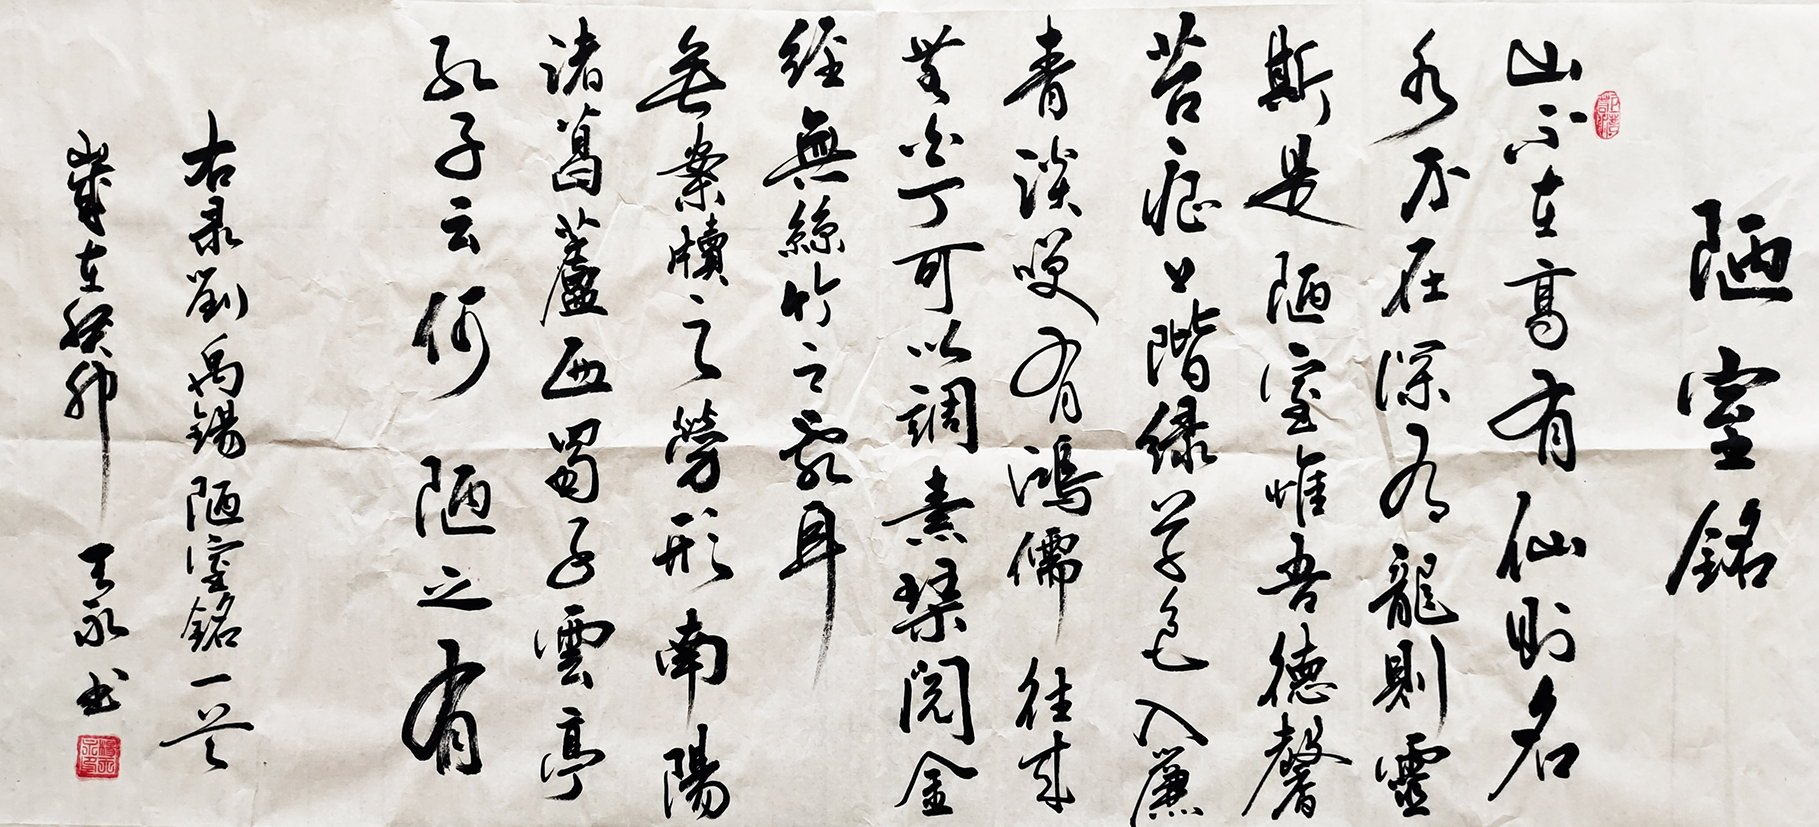 陋室銘
山不在高有仙則名
水不在深有龍則靈
斯是陋室惟吾德馨
苔痕上階緑草色入簾
青談笑有鴻儒往来
無白丁可以調素琴閱金
經無絲竹之亂耳
無案牘之勞形南陽
諸葛蘆西蜀子雲亭
孔子云何陋之有
右录劉禹錫陋室銘一首
歲在癸卯 永书